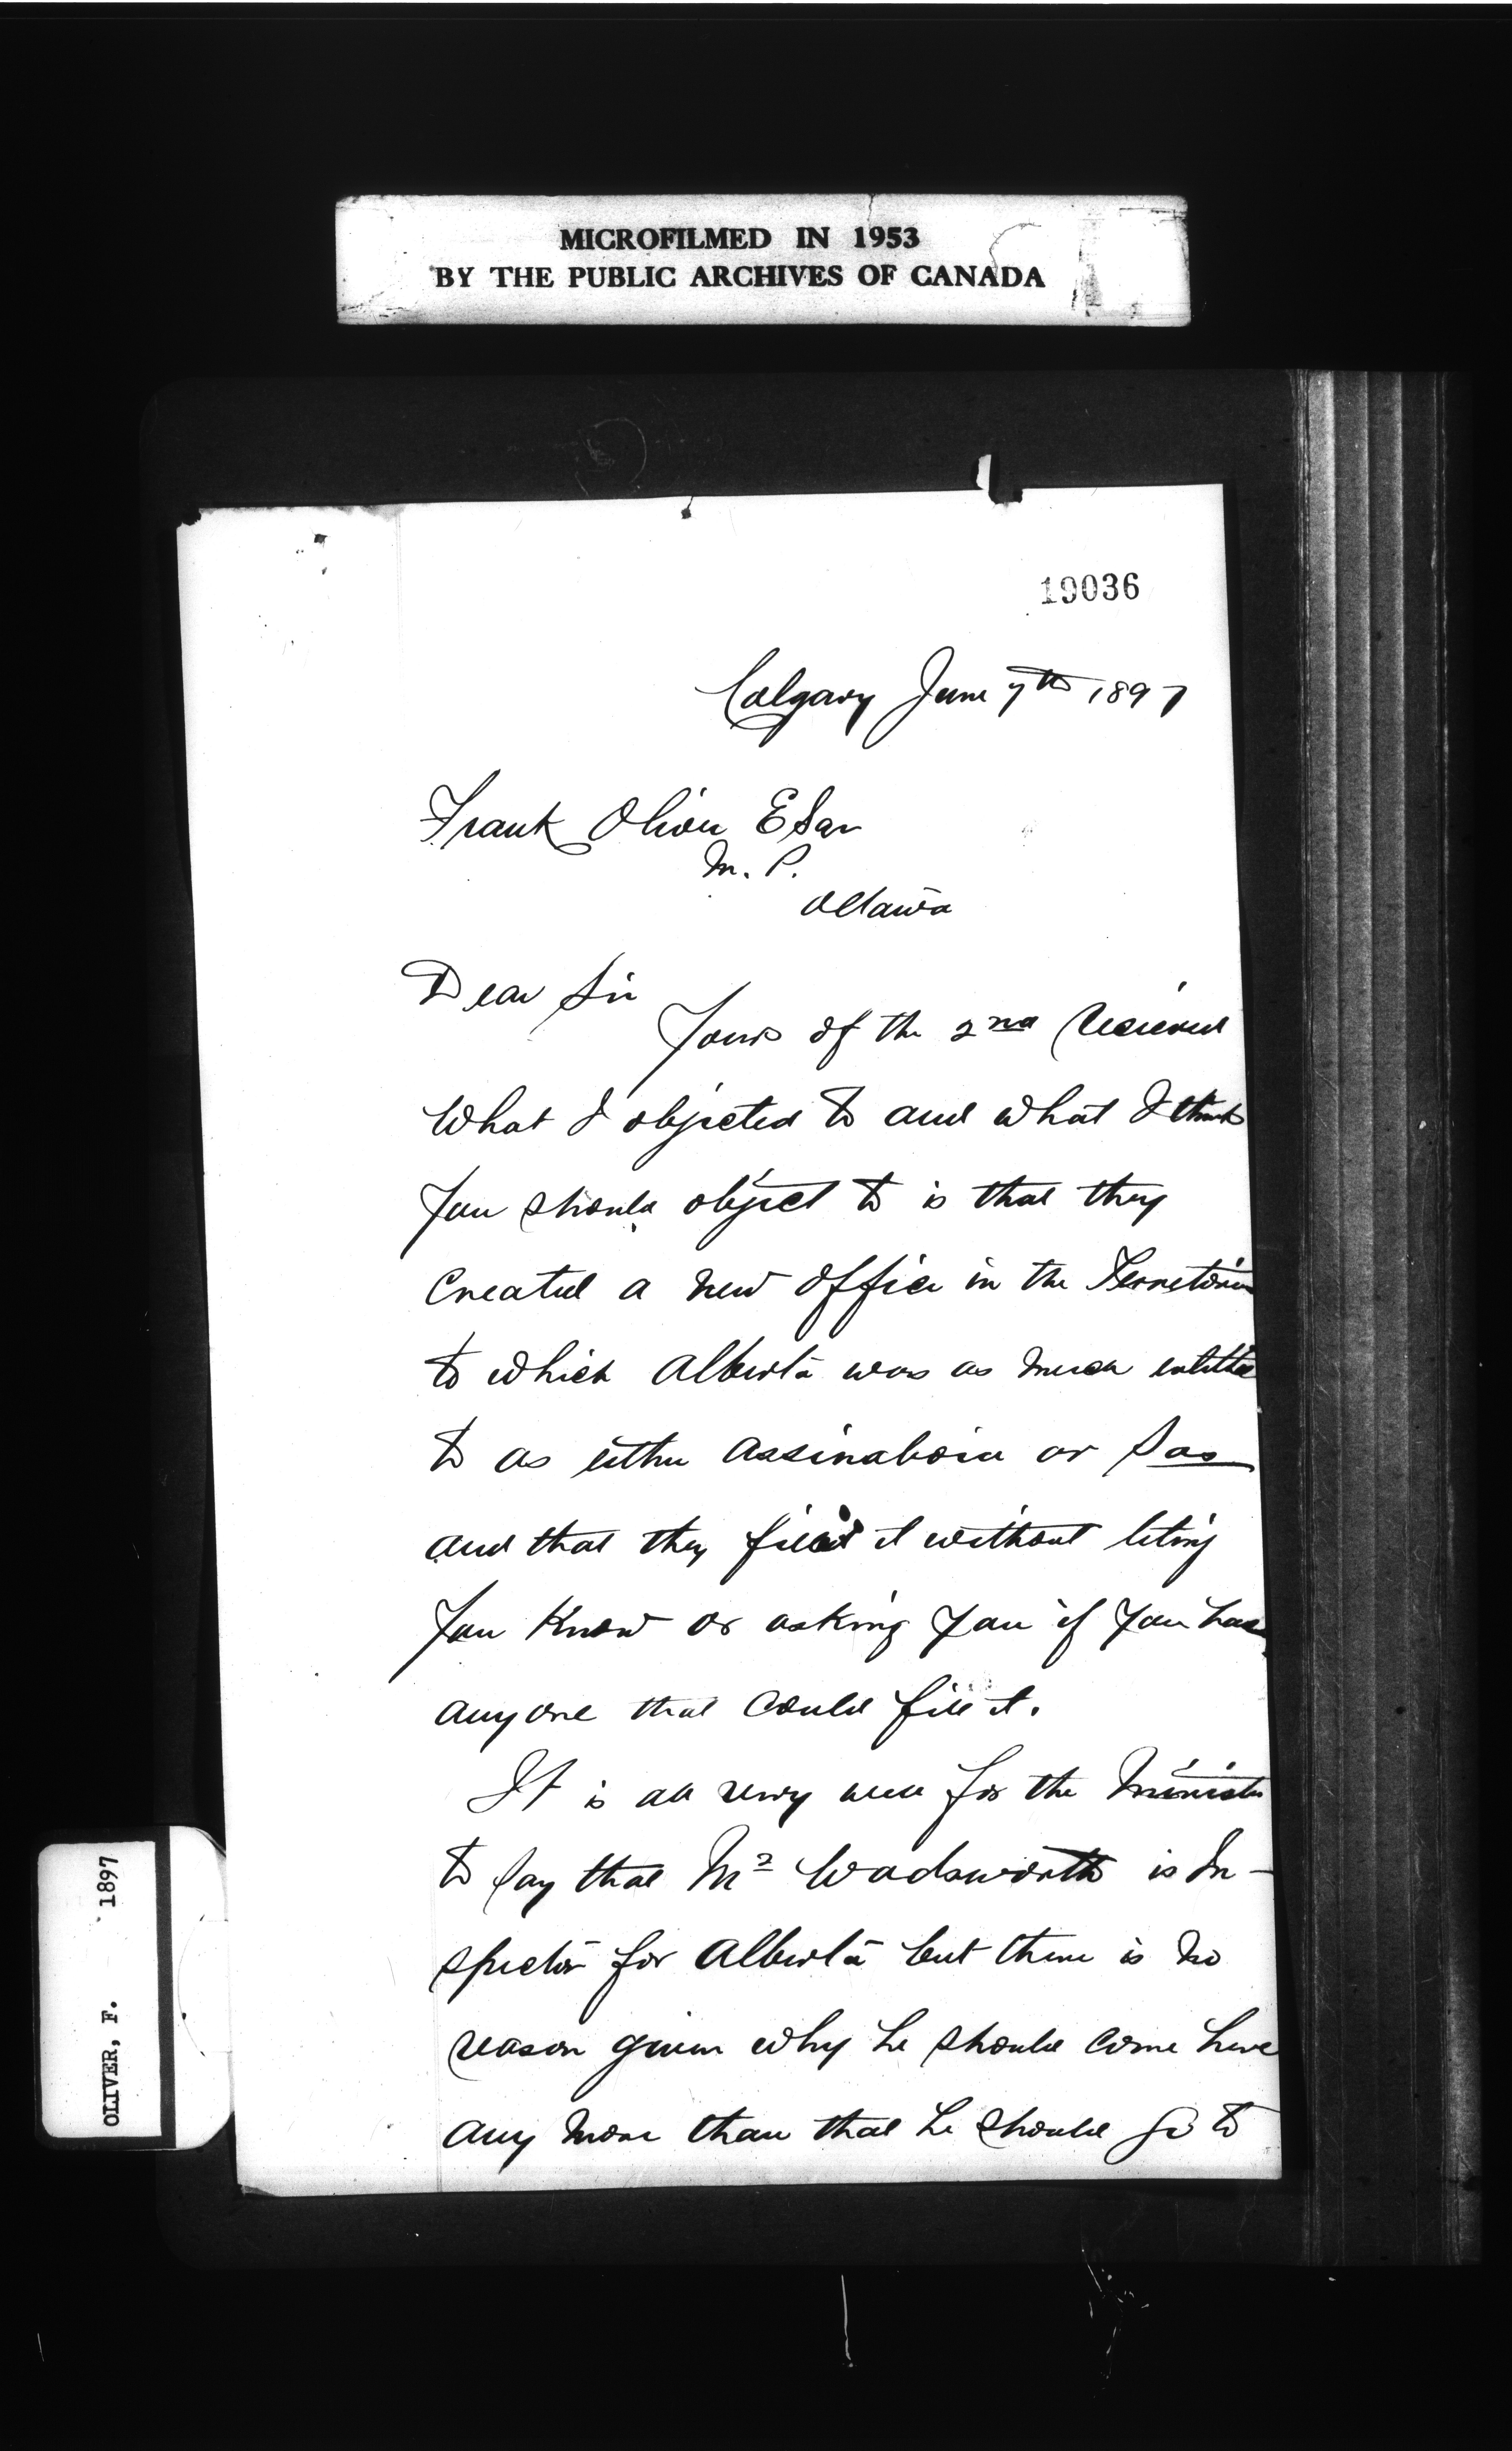 MICROFILMED IN 1953
BY THE PUBLIC ARCHIVES OF CANADA
19036
Calgary June 7th 1897
Frank Oliver Esqr
M. P.
Ottawa
Dear Sir
Yours of the 2nd Recieved
What I objected to and what I think
you should object to is that they
Created a new office in the Terretories
to which Alberta was as much entitled
to as either Assinaboia or Sas
and that they fill'd it without leting
you know or asking you if you had
anyone that could fill it.
It is all very well for the Minister
to say that Mr Wadsworth is In-
spector for Alberta but there is no
reason given why he should come here
any more than that he should go to
OLIVER, F. 1897